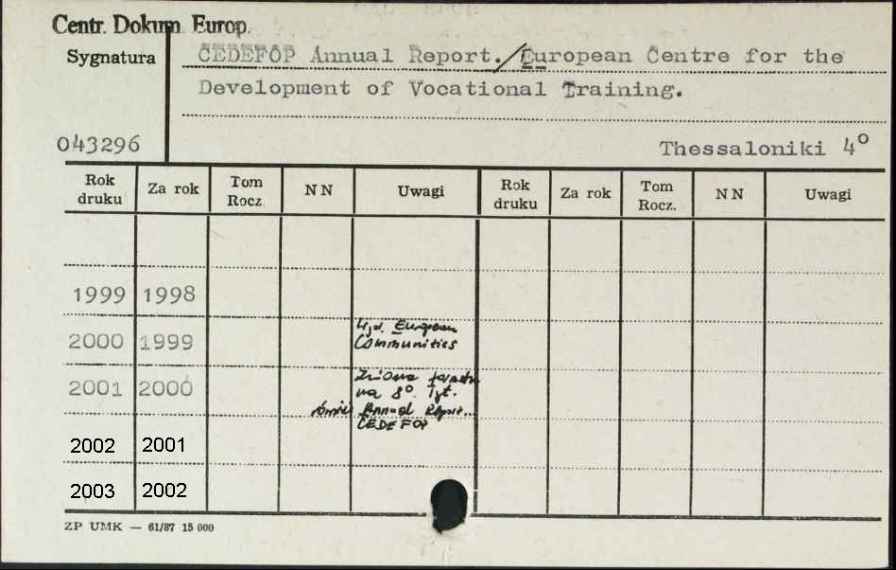 Centr. Dokum. Europ.
Sygnatura
CEDEFOP Annual Report./European Centre for the
Development of Vocational Training.
043296
Thessaloniki 4°
Rok druku Za rok Tom Rocz. NN Uwagi Rok druku Za rok Tom Rocz. NN Uwagi
1999 1998
2000 1999 Wyd. European
Communities
2001 2000 Zmiana formatu
na 8°. Tyt.
Annual Report...
CEDEFOP
2002 2001
2003 2002
ZP UMK — 61/87 15 000